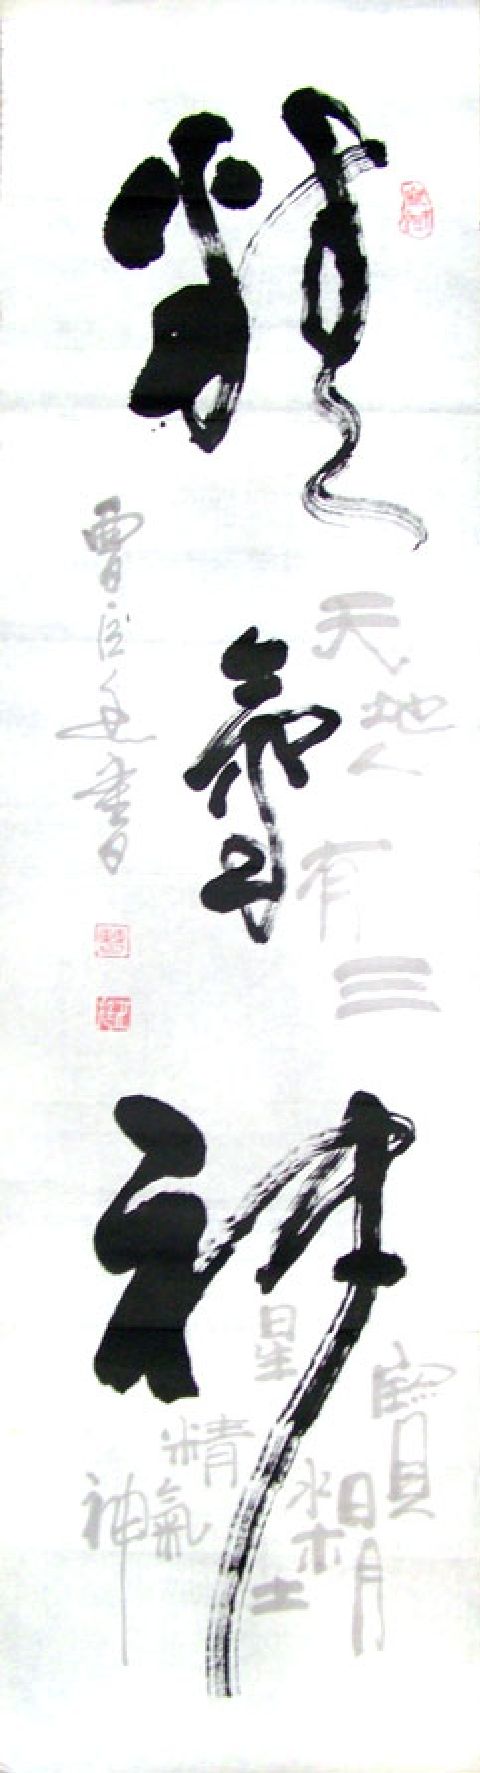 精氣神
天地人有三
寶
日月
星
水木土
精氣
神
曹 書